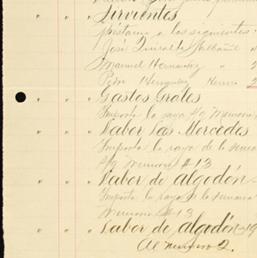 Sirvientes
préstamo a los siguientes
José
Manuel Hernandez " 2
Pedro
" " " Gastos Grales
Importe la raya s/g Memoria
" " " Labor Las Mercedes
Importe la raya de la semana
s/g Memoria #13
" " " Labor de algodón
Importe la raya de la semana
Memoria #13
" " " Labor de algodón 19
Al numero 2.